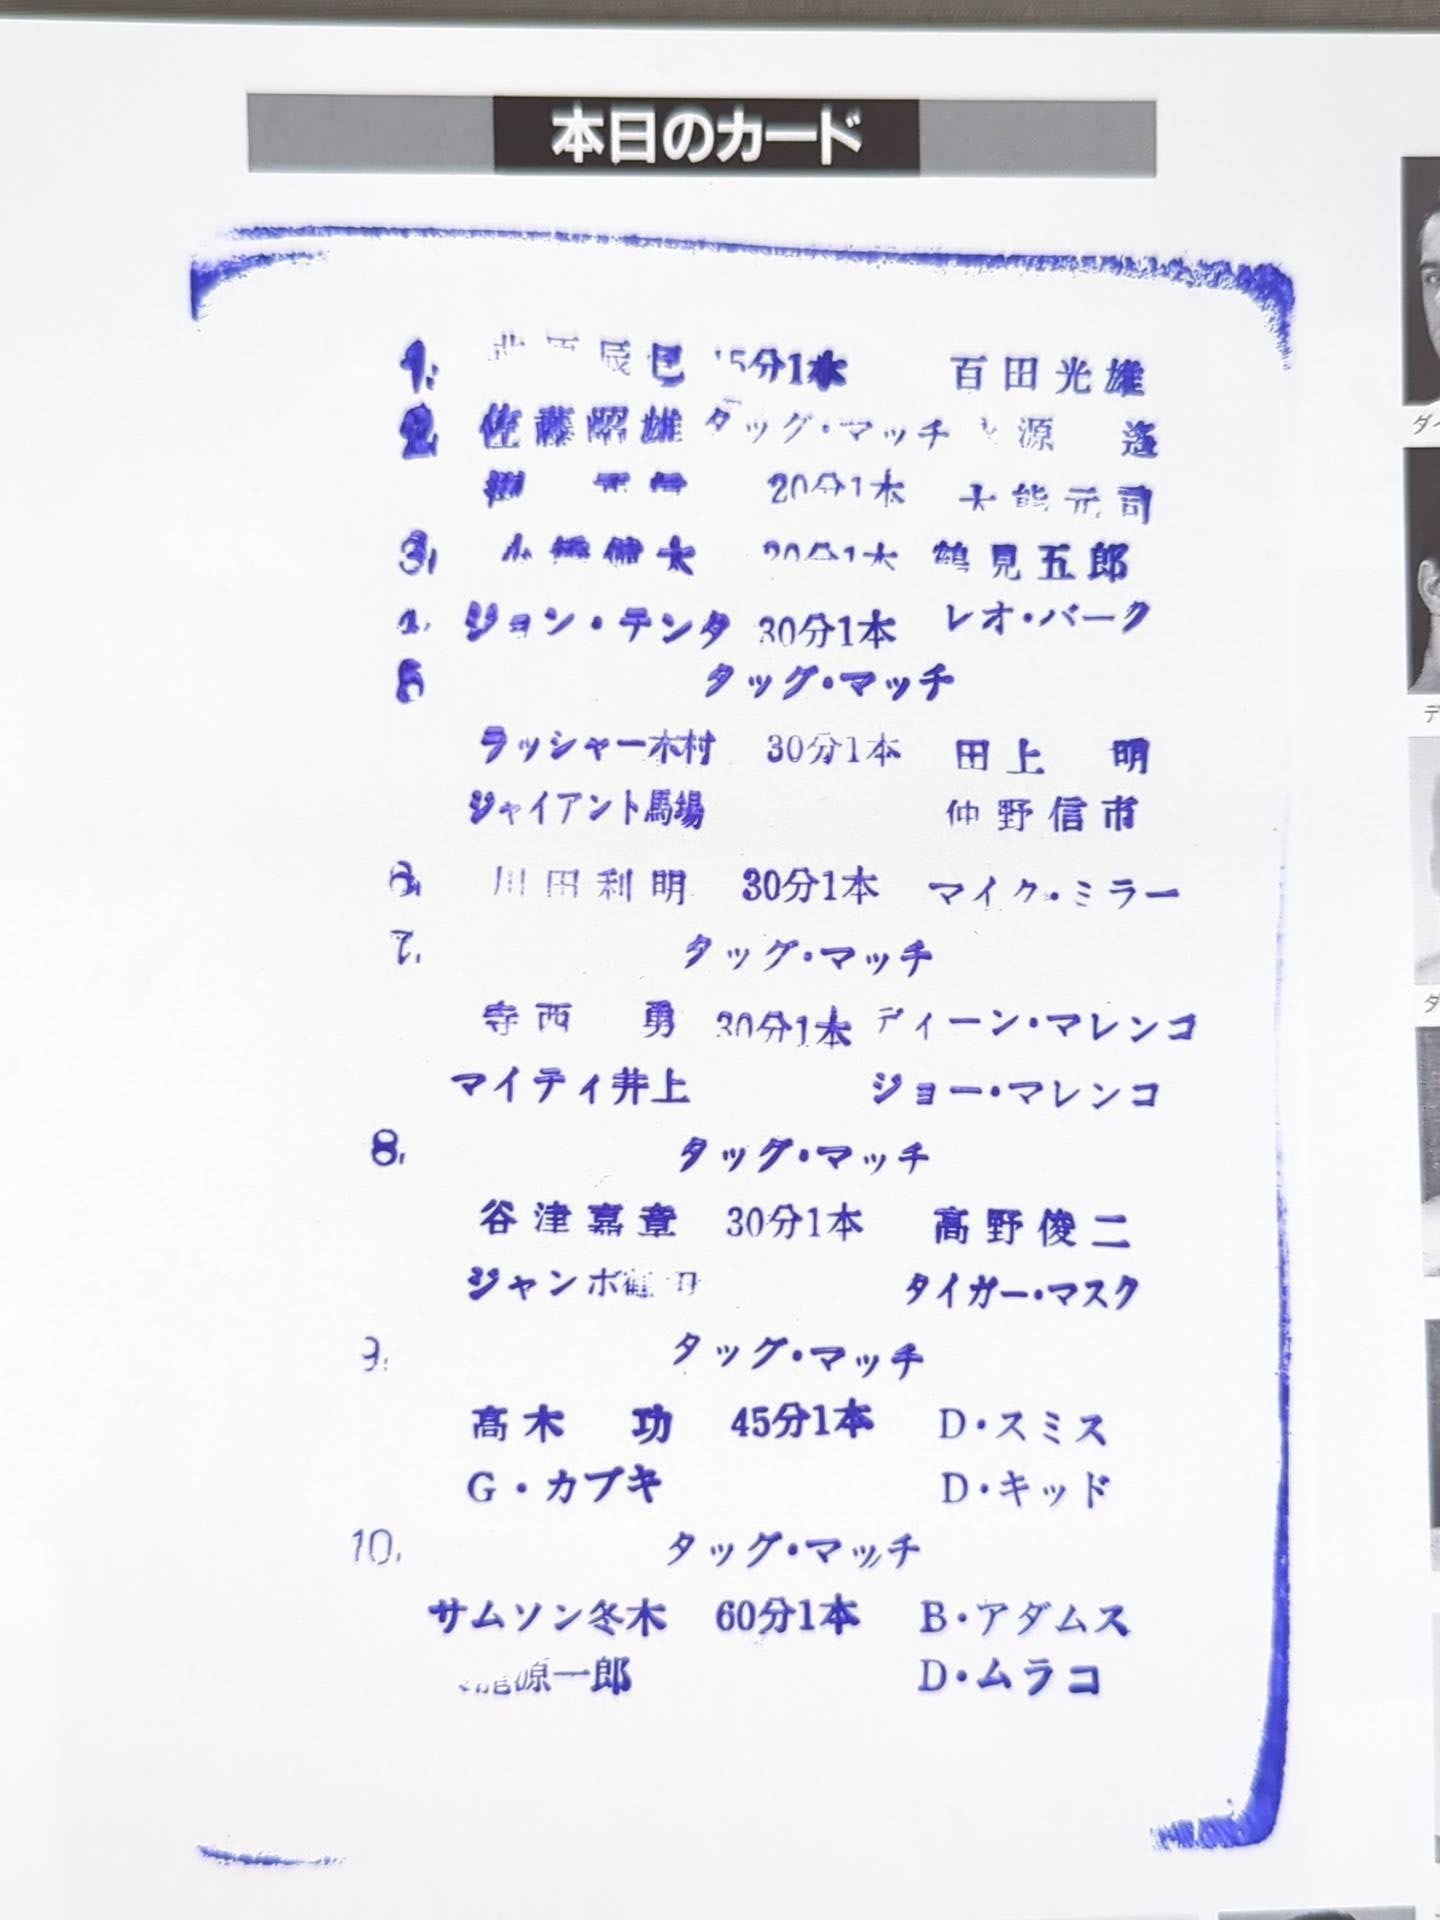 本日のカード
1. 辰巳 15分1本 百田光雄
2 佐藤昭雄 タッグ・マッチ 源 遥
20分1本 大熊元司
3. 小橋健太 20分1本 鶴見五郎
4. ジョン・テンタ 30分1本 レオ・バーク
5 タッグ・マッチ
ラッシャー木村 30分1本 田上 明
ジャイアント馬場 仲野信市
6. 川田利明 30分1本 マイク・ミラー
7. タッグ・マッチ
寺西 勇 30分1本 ディーン・マレンコ
マイティ井上 ジョー・マレンコ
8. タッグ・マッチ
谷津嘉章 30分1本 高野俊二
ジャンボ鶴田 タイガー・マスク
9. タッグ・マッチ
高木 功 45分1本 D・スミス
G・カブキ D・キッド
10. タッグ・マッチ
サムソン冬木 60分1本 B・アダムス
龍源一郎 D・ムラコ